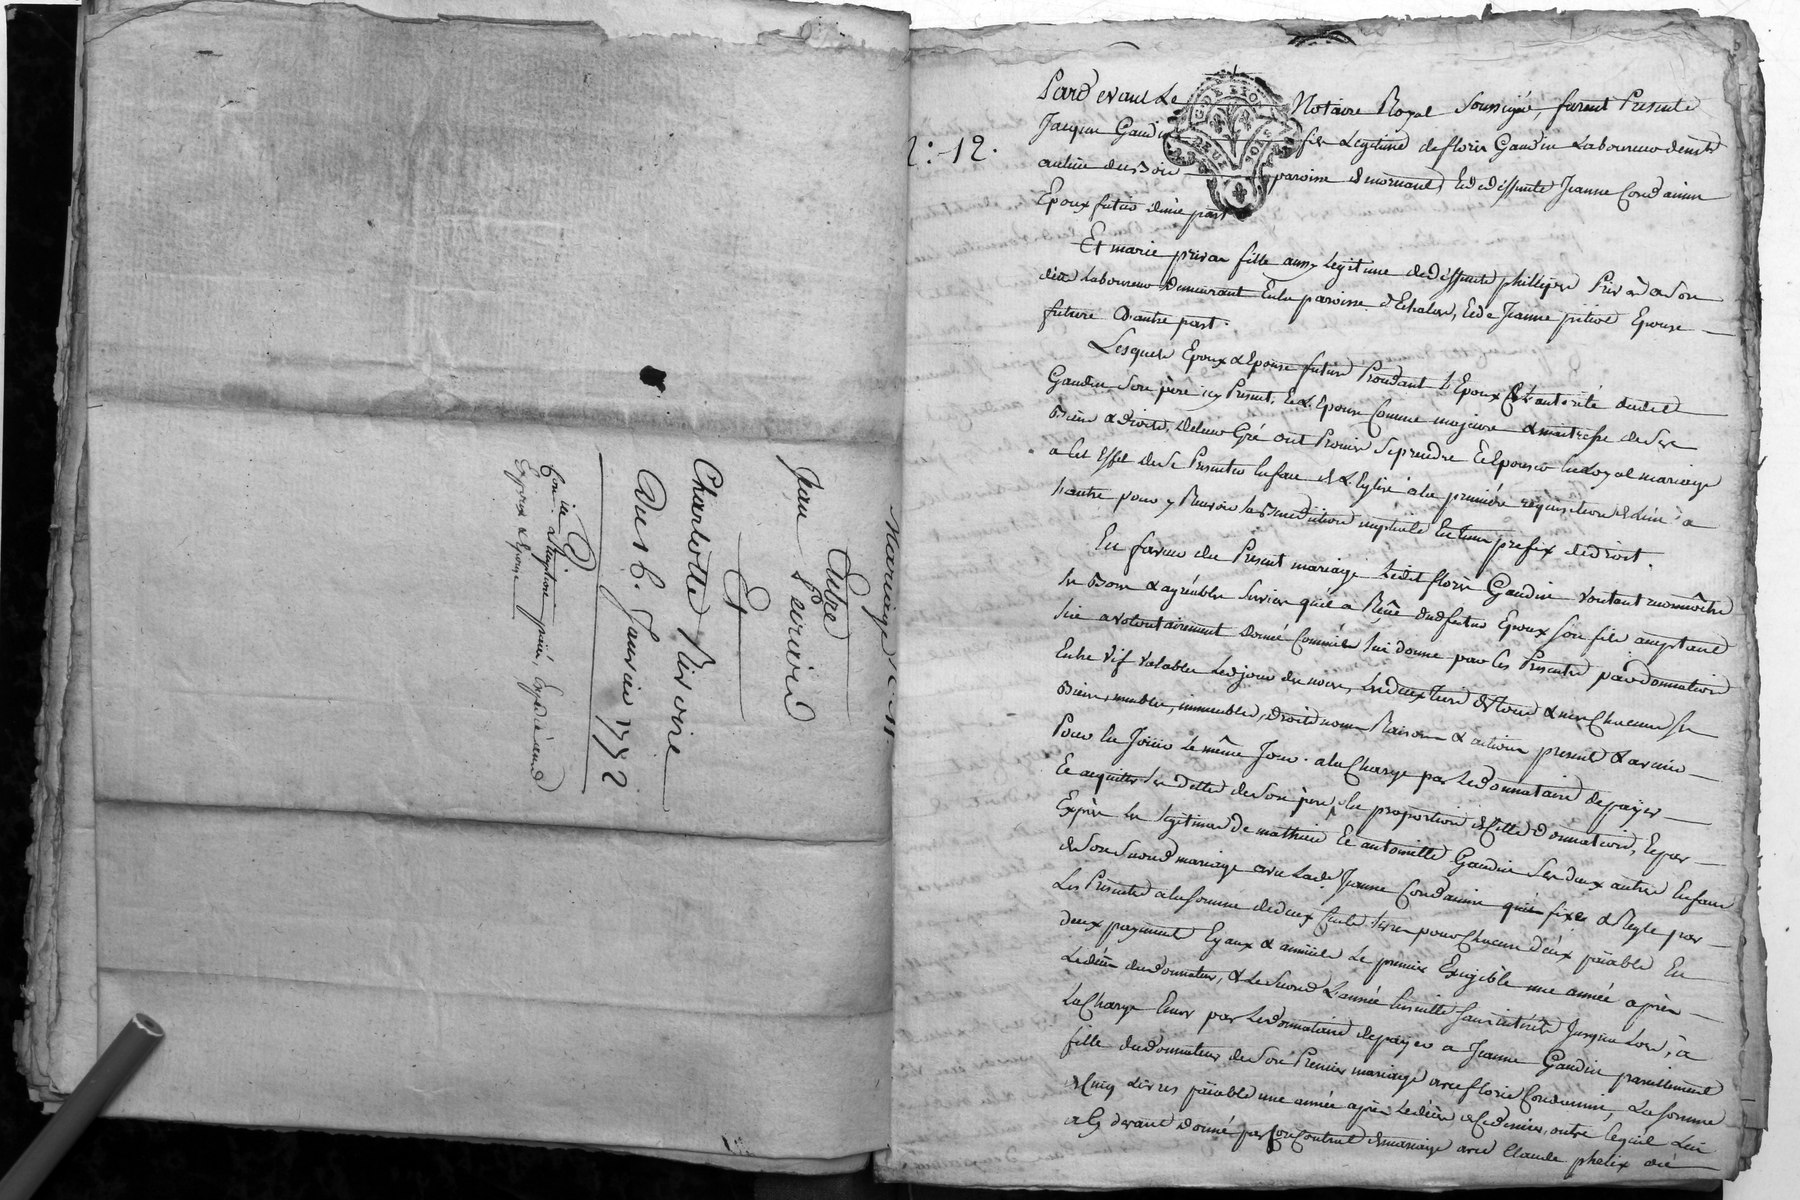 Mariage
Entre
Jean
Et
Charlotte Rivoire
Du 6. Janvier 1772
Epoux & Epouse
2:12.
GEN. DE LYON
DEUX SOLS
Pard evant Le Notaire Royal Soussigné, furent Presents
Jacques Gaudin fils Legitime de floris Gaudin Laboureur
paroisse de mornant, Et de deffunte Jeanne Condamin
Epoux futur d'une part
Et marie privas fille aussy Legitime de deffunt phillipes Privas
Laboureur Demeurant En la paroisse d'Echalas, Et de Jeanne Epouse
future D'autre part.
Lesquels Epoux & Epouse futurs Procedant L'Epoux de L'autorité dudit
Gaudin Son père icy Present, Et L'Epouse Comme majeure & maitresse de Ses
Biens & Droits, De leur Gré ont Promis Se prendre Et Epouser En Loyal mariage
a Cet Effet de Se Presenter En face de L'Eglise a la première requisition de L'un a
L'autre pour y Recevoir la Benediction nuptiale En tems prefix de droit.
En faveur du Present mariage Ledit floris Gaudin voulant reconnoître
les Bons & agréables Services qu'il a Reçu dudit futur Epoux Son fils acceptant
Lui a volontairement donné Comme il Lui donne par Ces Presentes par donnation
Entre Vif valables Les deux tiers de tous & uns Chacuns Ses
Biens, meubles, immeubles, droits noms Raisons & actions present & avenir
Pour En Jouir Le même Jour. a la Charge par Le Donnataire de payer
Et acquitter Les Dettes de Son père a la proportion de Cette donnation, Et par
Exprès Les legitimes de mathieu Et antoinette Gaudin Ses deux autres Enfans
de Son Second mariage avec Lad. Jeanne Condamin qu'il fixe & Regle par
Les Presentes a la Somme de deux Cents Livres pour Chacun d'Eux païable En
deux payements Egaux & annuels Le premier Exigible une année après
Le décès du donnateur, & Le Second L'année Ensuitte Sans interêts Jusques Lors, à
La Charge Encore par Le donnataire de payer a Jeanne Gaudin pareillement
fille du donnateur de Son Premier mariage avec floris Condamin, La Somme
de Cinq Livres païable une année après Le décès de Ce dernier, outre Ce qu'il Lui
a Cy devant donné par Son Contract de mariage avec Claude phelix